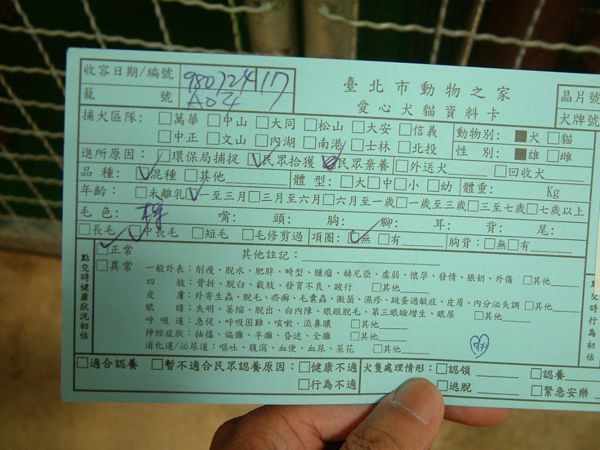 收容日期/編號 980724 17
臺北市動物之家
晶片號
籠 號 A04
愛心犬貓資料卡
犬牌號
捕犬區隊：□萬華 □中山 □大同 □松山 □大安 □信義 動物別：■犬 □貓
□中正 □文山 □內湖 □南港 □士林 □北投 性 別：■雄 □雌
進所原因：□環保局捕捉 □民眾拾獲 □民眾棄養 □外送犬 □回收犬
品 種：□混種 □其他 體 型：□大 □中 □小 □幼 體重： Kg
年齡：□未離乳 □一至三月 □三至六月 □六月至一歲 □一歲至三歲 □三至七歲 □七歲以上
毛 色： 嘴： 頭： 胸： 腳： 耳： 背： 尾：
□長毛 □中長毛 □短毛 □毛修剪過 項圈：□無 □有 胸背：□無 □有
點交時健康狀況初估
□正常
□異常
其他註記：
一般外表：削瘦、脫水、肥胖、畸型、腫瘤、赫尼亞、虛弱、懷孕、發情、脹奶、外傷 □其他
四 肢：骨折、脫臼、截肢、發育不良、跛行 □其他
皮 膚：外寄生蟲、脫毛、疥癬、毛囊蟲、黴菌、濕疹、跳蚤過敏症、皮屑、內分泌失調 □其他
眼 睛：失明、萎縮、脫出、白內障、眼眶脫毛、第三眼瞼增生、眼屎 □其他
呼 吸 道：急促、呼吸困難、咳嗽、流鼻膿 □其他
神經症狀：抽搐、偏癱、半癱、昏迷、全癱 □其他
消化道/泌尿道：嘔吐、腹瀉、血便、血尿、菜花 □其他
□適合認養 □暫不適合民眾認養原因：□健康不適 犬隻處理情形：□認領 □認養
□行為不適 □逃脫 □緊急安樂